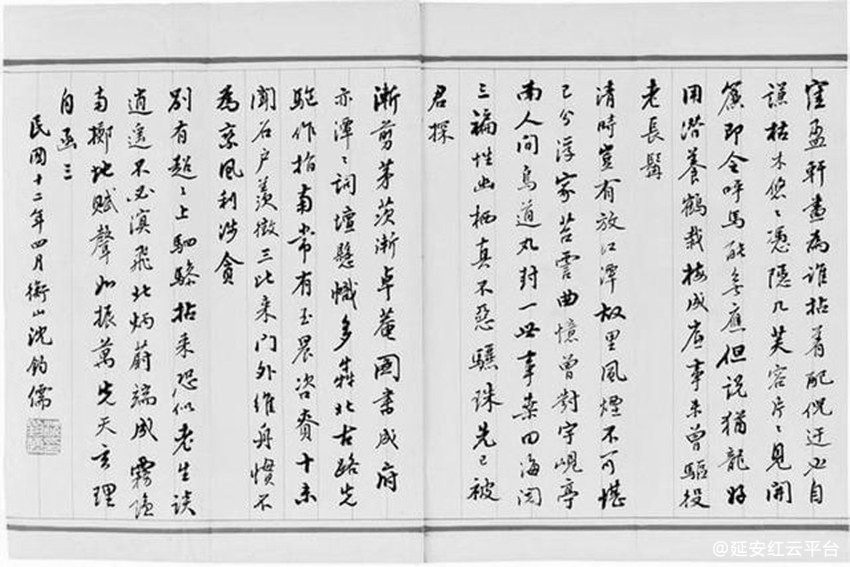 窪盈軒畫為誰拈着配倪迂必自
謙枯木悠々憑隱几芙容片々見開
簾即今呼馬能無應但說猶龍好
用潛養鶴栽梅成底事未曾驅役
老長髯
清時豈有放江潭故里風煙不可堪
已分浮家苕霅曲憶曾對宇峴亭
南人間鳥道丸封一世事桑田海閱
三褊性幽栖真不惡驪珠先已被
君探
漸剪茅茨漸卓菴圖書成府
亦潭々詞壇懸幟多犇北古路先
馳作指南常有玉晨咨賚十未
聞石戶羨徵三比来門外維舟慣不
為乘風利涉貪
別有超々上駟驂拈来恐似老生談
逍遙不必溟飛北炳蔚端成霧隱
南擲地賦聲如振萬先天玄理
自函三
民國十二年四月衡山沈鈞儒
@延安红云平台